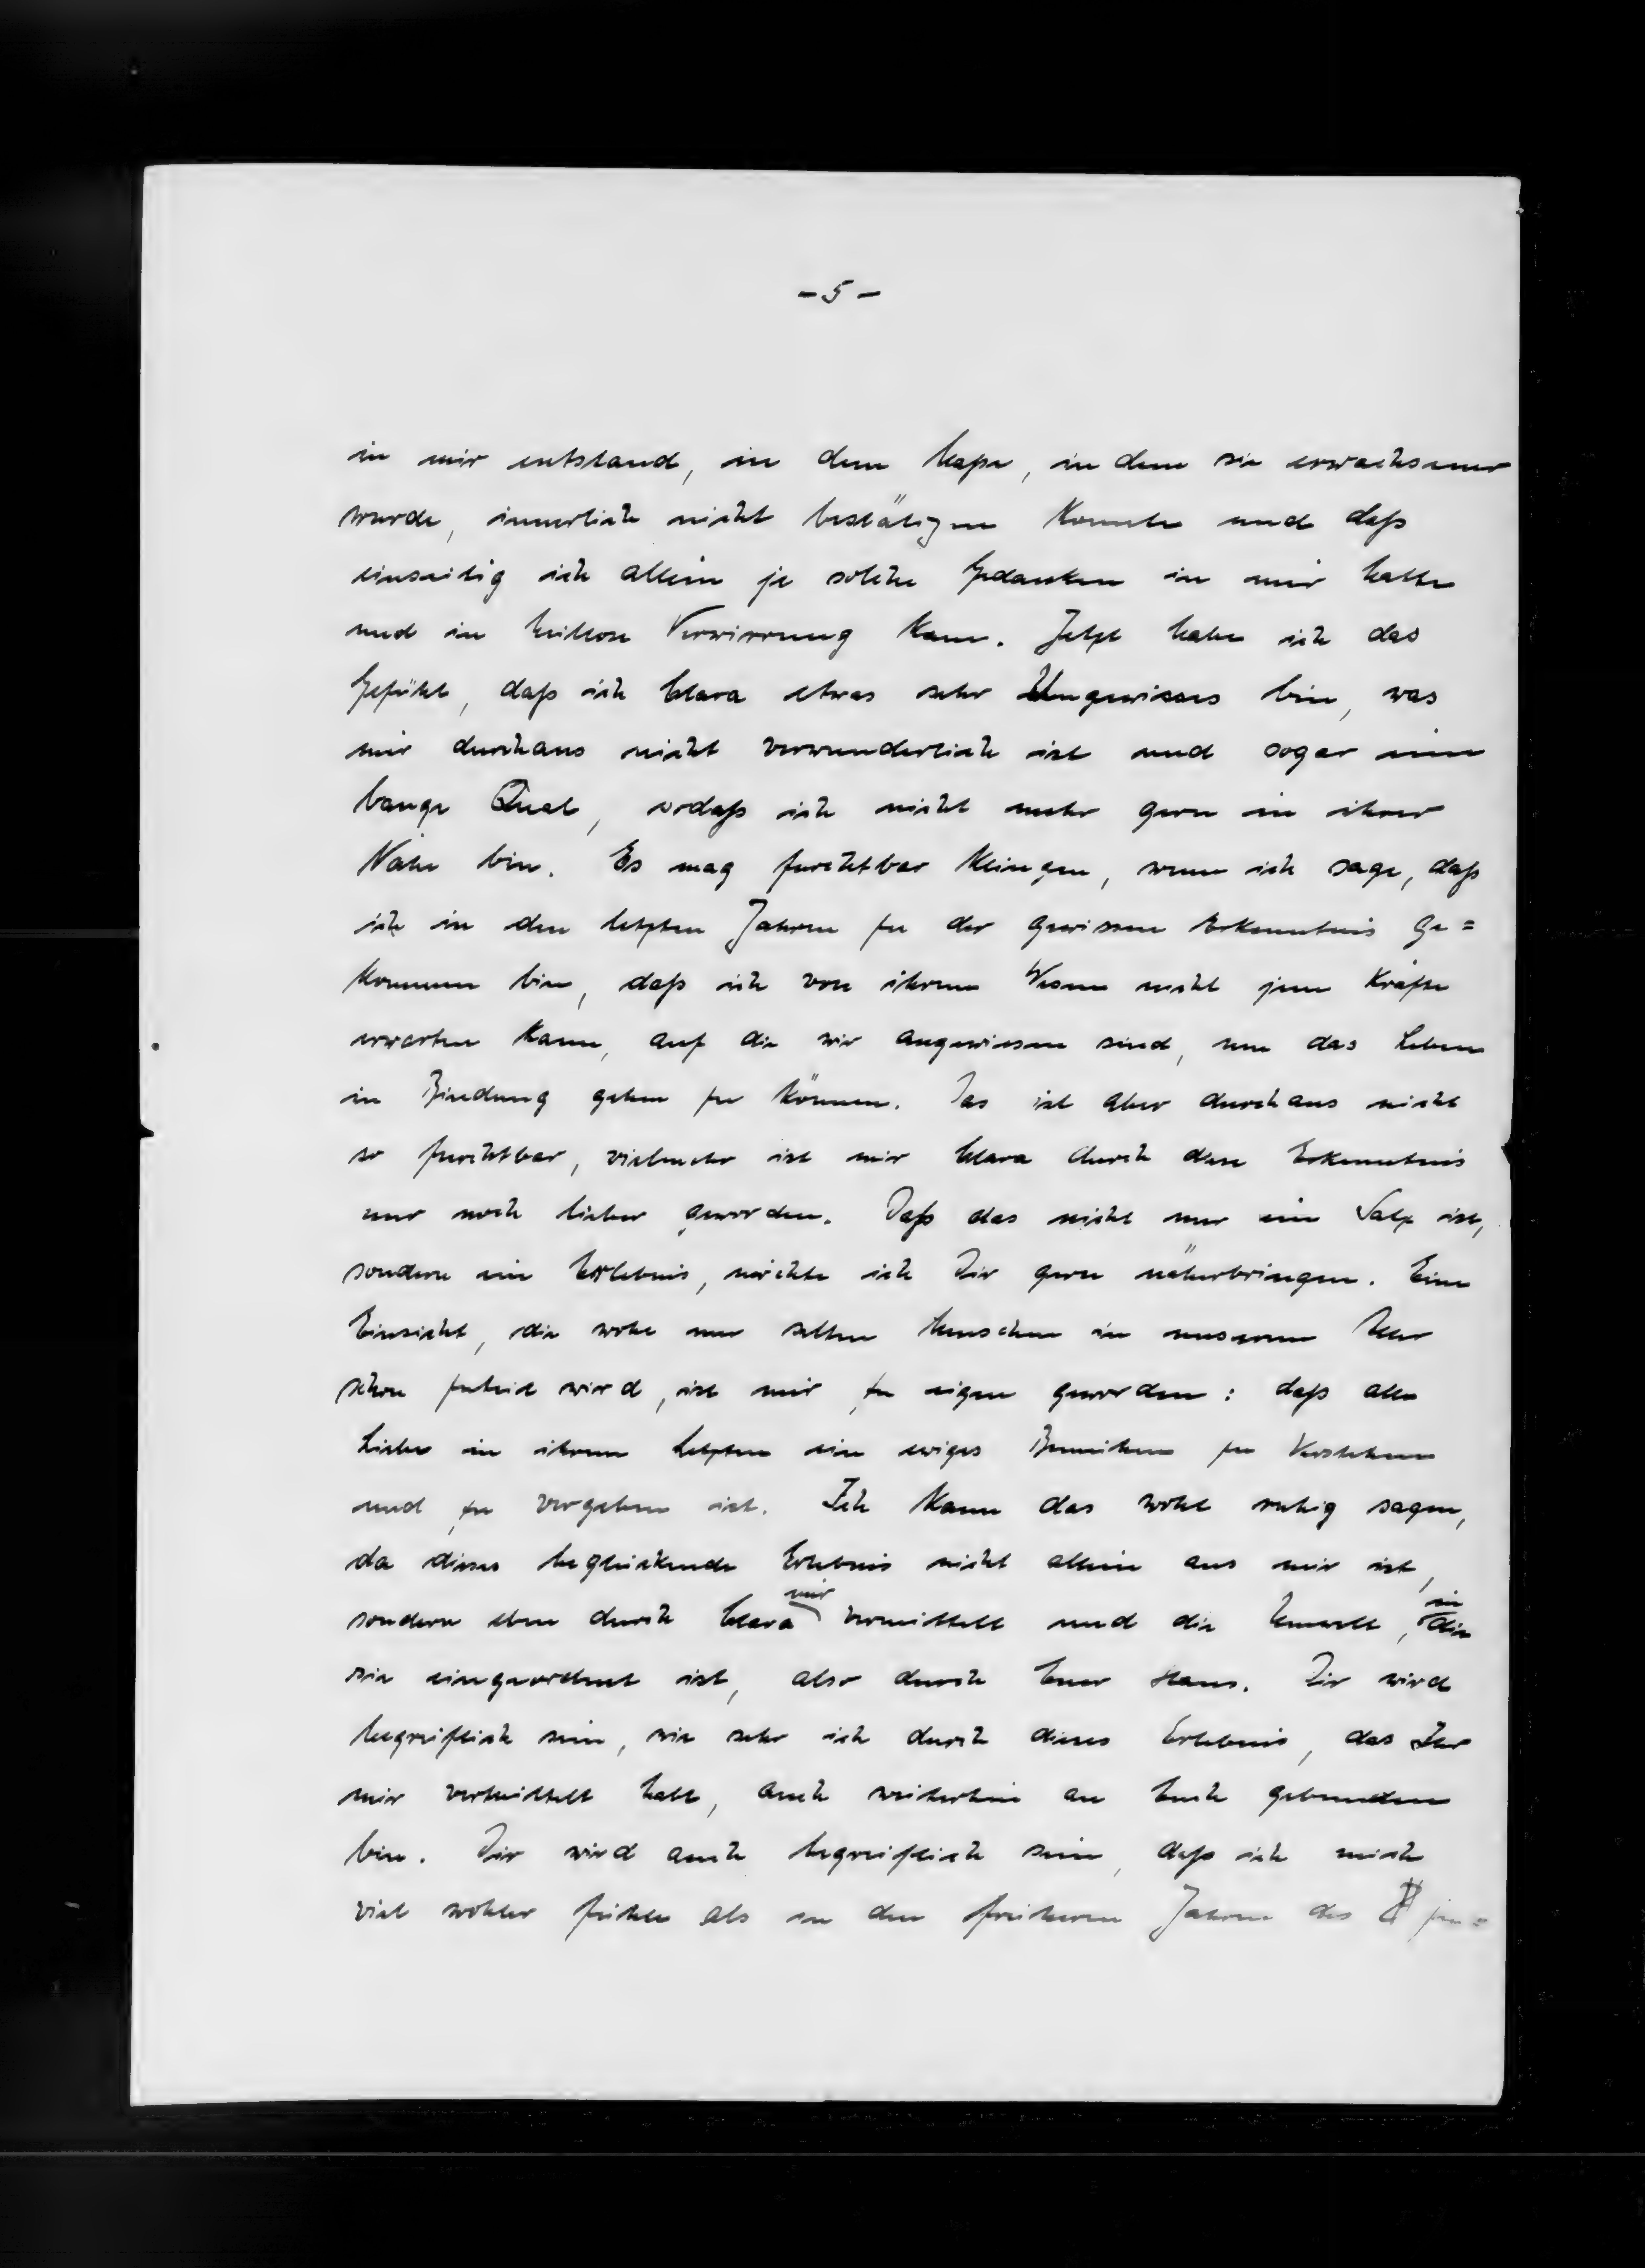 - 5 -
in mir entstand, in dem Maße, in dem sie erwachsener
wurde, innerlich nicht bestätigen konnte und daß
einseitig ich allein je solche Gedanken in mir hatte
und in heillose Verwirrung kam. Jetzt habe ich das
Gefühl, daß ich Clara etwas sehr Ungewisses bin, was
mir durchaus nicht verwunderlich ist und sogar eine
bange Qual, sodaß ich nicht mehr gern in ihrer
Nähe bin. Es mag furchtbar klingen, wenn ich sage, daß
ich in den letzten Jahren zu der gewissen Erkenntnis ge=
kommen bin, daß ich von ihrem Wesen nicht jene Kräfte
erwarten kann, auf die wir angewiesen sind, um das Leben
in Bindung gehen zu können. Das ist aber durchaus nicht
so furchtbar, vielmehr ist mir Clara durch diese Erkenntnis
nur noch lieber geworden. Daß das nicht nur ein Satz ist,
sondern ein Erlebnis, möchte ich Dir gern näherbringen. Eine
Einsicht, die wohl nur selten Menschen in unserem Alter
schon zuteil wird, ist mir zu eigen geworden: daß alle
Liebe in ihrem Letzten ein ewiges Bemühen zu Verstehen
und zu vergeben ist. Ich kann das wohl ruhig sagen,
da dieses beglückende Erlebnis nicht allein aus mir ist,
sondern eben durch Clara mir vermittelt und die Umwelt, in die
sie eingeordnet ist, also durch Euer Haus. Dir wird
begreiflich sein, wie sehr ich durch dieses Erlebnis, das Ihr
mir vermittelt habt, auch weiterhin an Euch gebunden
bin. Dir wird auch begreiflich sein, daß ich mich
viel wohler fühle als in den früheren Jahren des zu=